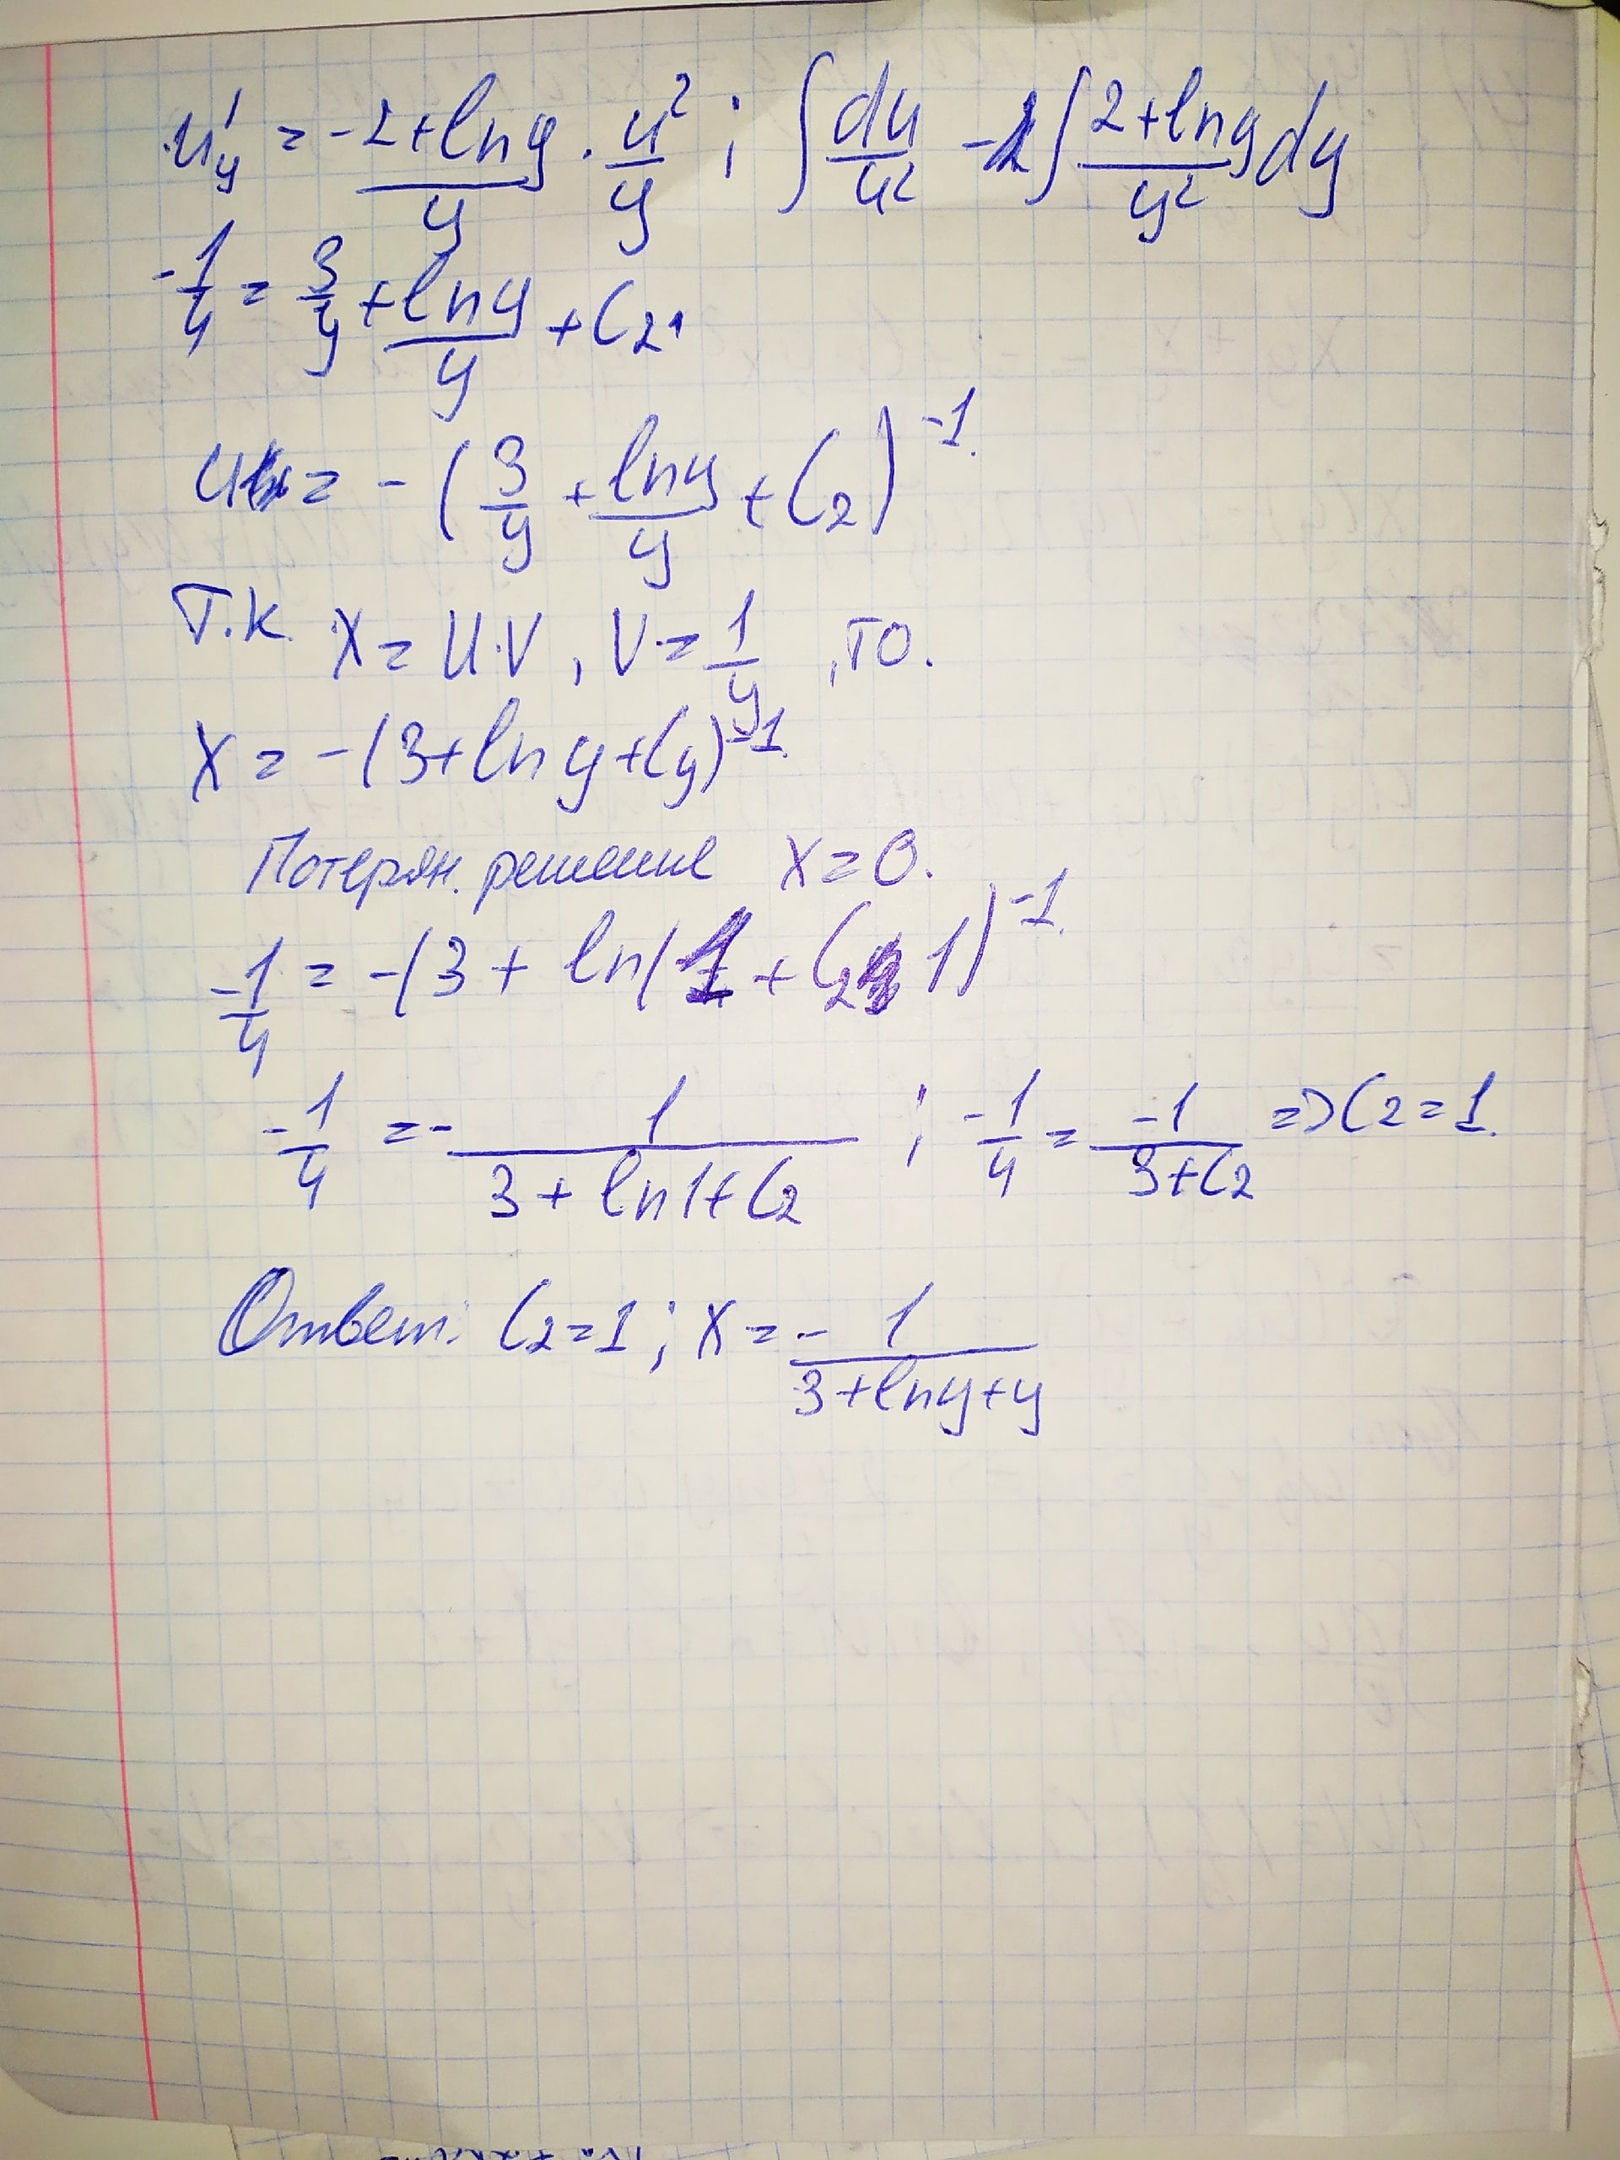 u'y = -2+lny/y · u²/y ; ∫ du/u² - ∫ 2+lny/y² dy
-1/u = 3/y + lny/y + C2.
u = -(3/y + lny/y + C2)^-1.
Т.к. X = U·V, V = 1/y, то.
X = -(3+lny+Cy)^-1.
Потерян. решение X=0.
-1/4 = -(3 + ln(1 + C2 1)^-1.
-1/4 = - 1/3+ln1+C2 ; -1/4 = -1/3+C2 => C2=1.
Ответ: C2=1; X = - 1/3+lny+y